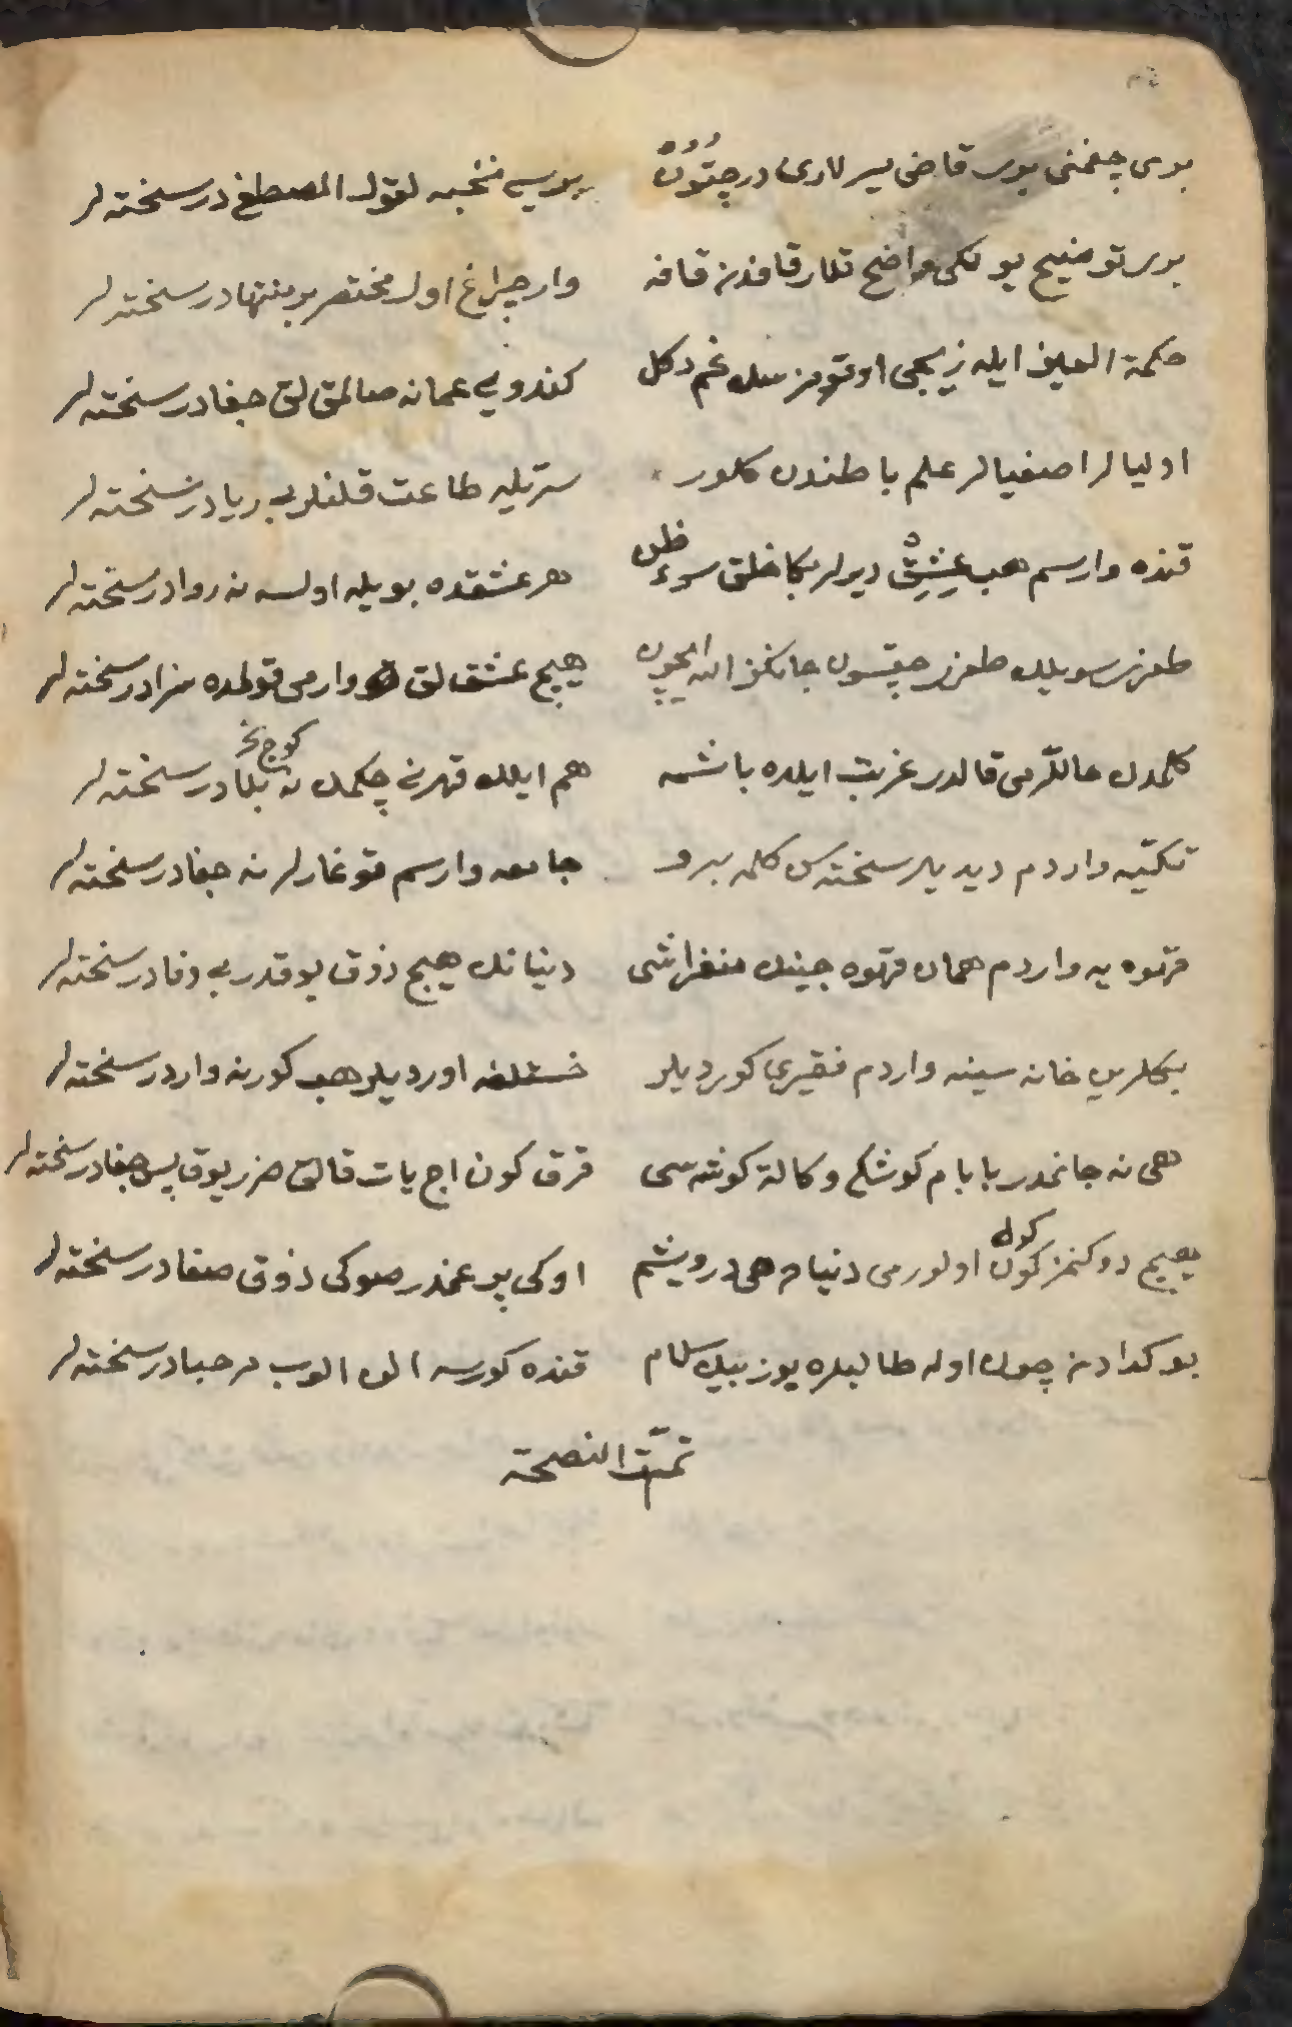 بری چغمنی بری قاضی میر لاری در چتون بریی نخبه لقول المصطفی در سخته لر
بری توضیح یولکی واضح قلار قافدن قافه وار چراغ اول مختصر بو منتهادر سخته لر
حکمة العین ایله زیجی اوقومزسك غم دکل کندویی عمانه صالمق لق جفادر سخته لر
اولیالر اصفیالر علم باطندن کلور ستریله طاعت قلنلر بی ریادر سخته لر
قنده وارسم هب عشق دیرلر بکا خلق سوء ظن هر عشقده بویله اولسه نه روادر سخته لر
طعزی سویلك طعزی چقسون جانکز الله ایچون هیچ عشق لق وارمی قولده سزادر سخته لر
کلمدن حالکرمی قالدر غربت ایلده باشمه هم ایلك قهرنی چکمك نه کوج بلادر سخته لر
تکیّیه واردم دیدیلر سخته سن کلمه برو جامعه وارسم قوغارلر نه جفادر سخته لر
قهوه یه واردم همان قهوه جینك منغراشی دنیانك هیچ ذوق یوقدر بی وفادر سخته لر
بکلرین خانه سینه واردم فقیری کوردیلر خسته اوردیلر هب کورنه واردر سخته لر
هی نه جانمدر بابام کوشکم وکالة کوشه سی قرق کون اج یات قالق ضرر یوق پس جفادر سخته لر
هیچ دوکنمز کون کوله اولورمی دنیا هی درویشم اوکی بو غمدر صوکی ذوق صفادر سخته لر
بو کدادن چون اوله طالبلره یوز بیك سلام قنده کورسه الن الوب مرحبادر سخته لر
تمّت النصحة